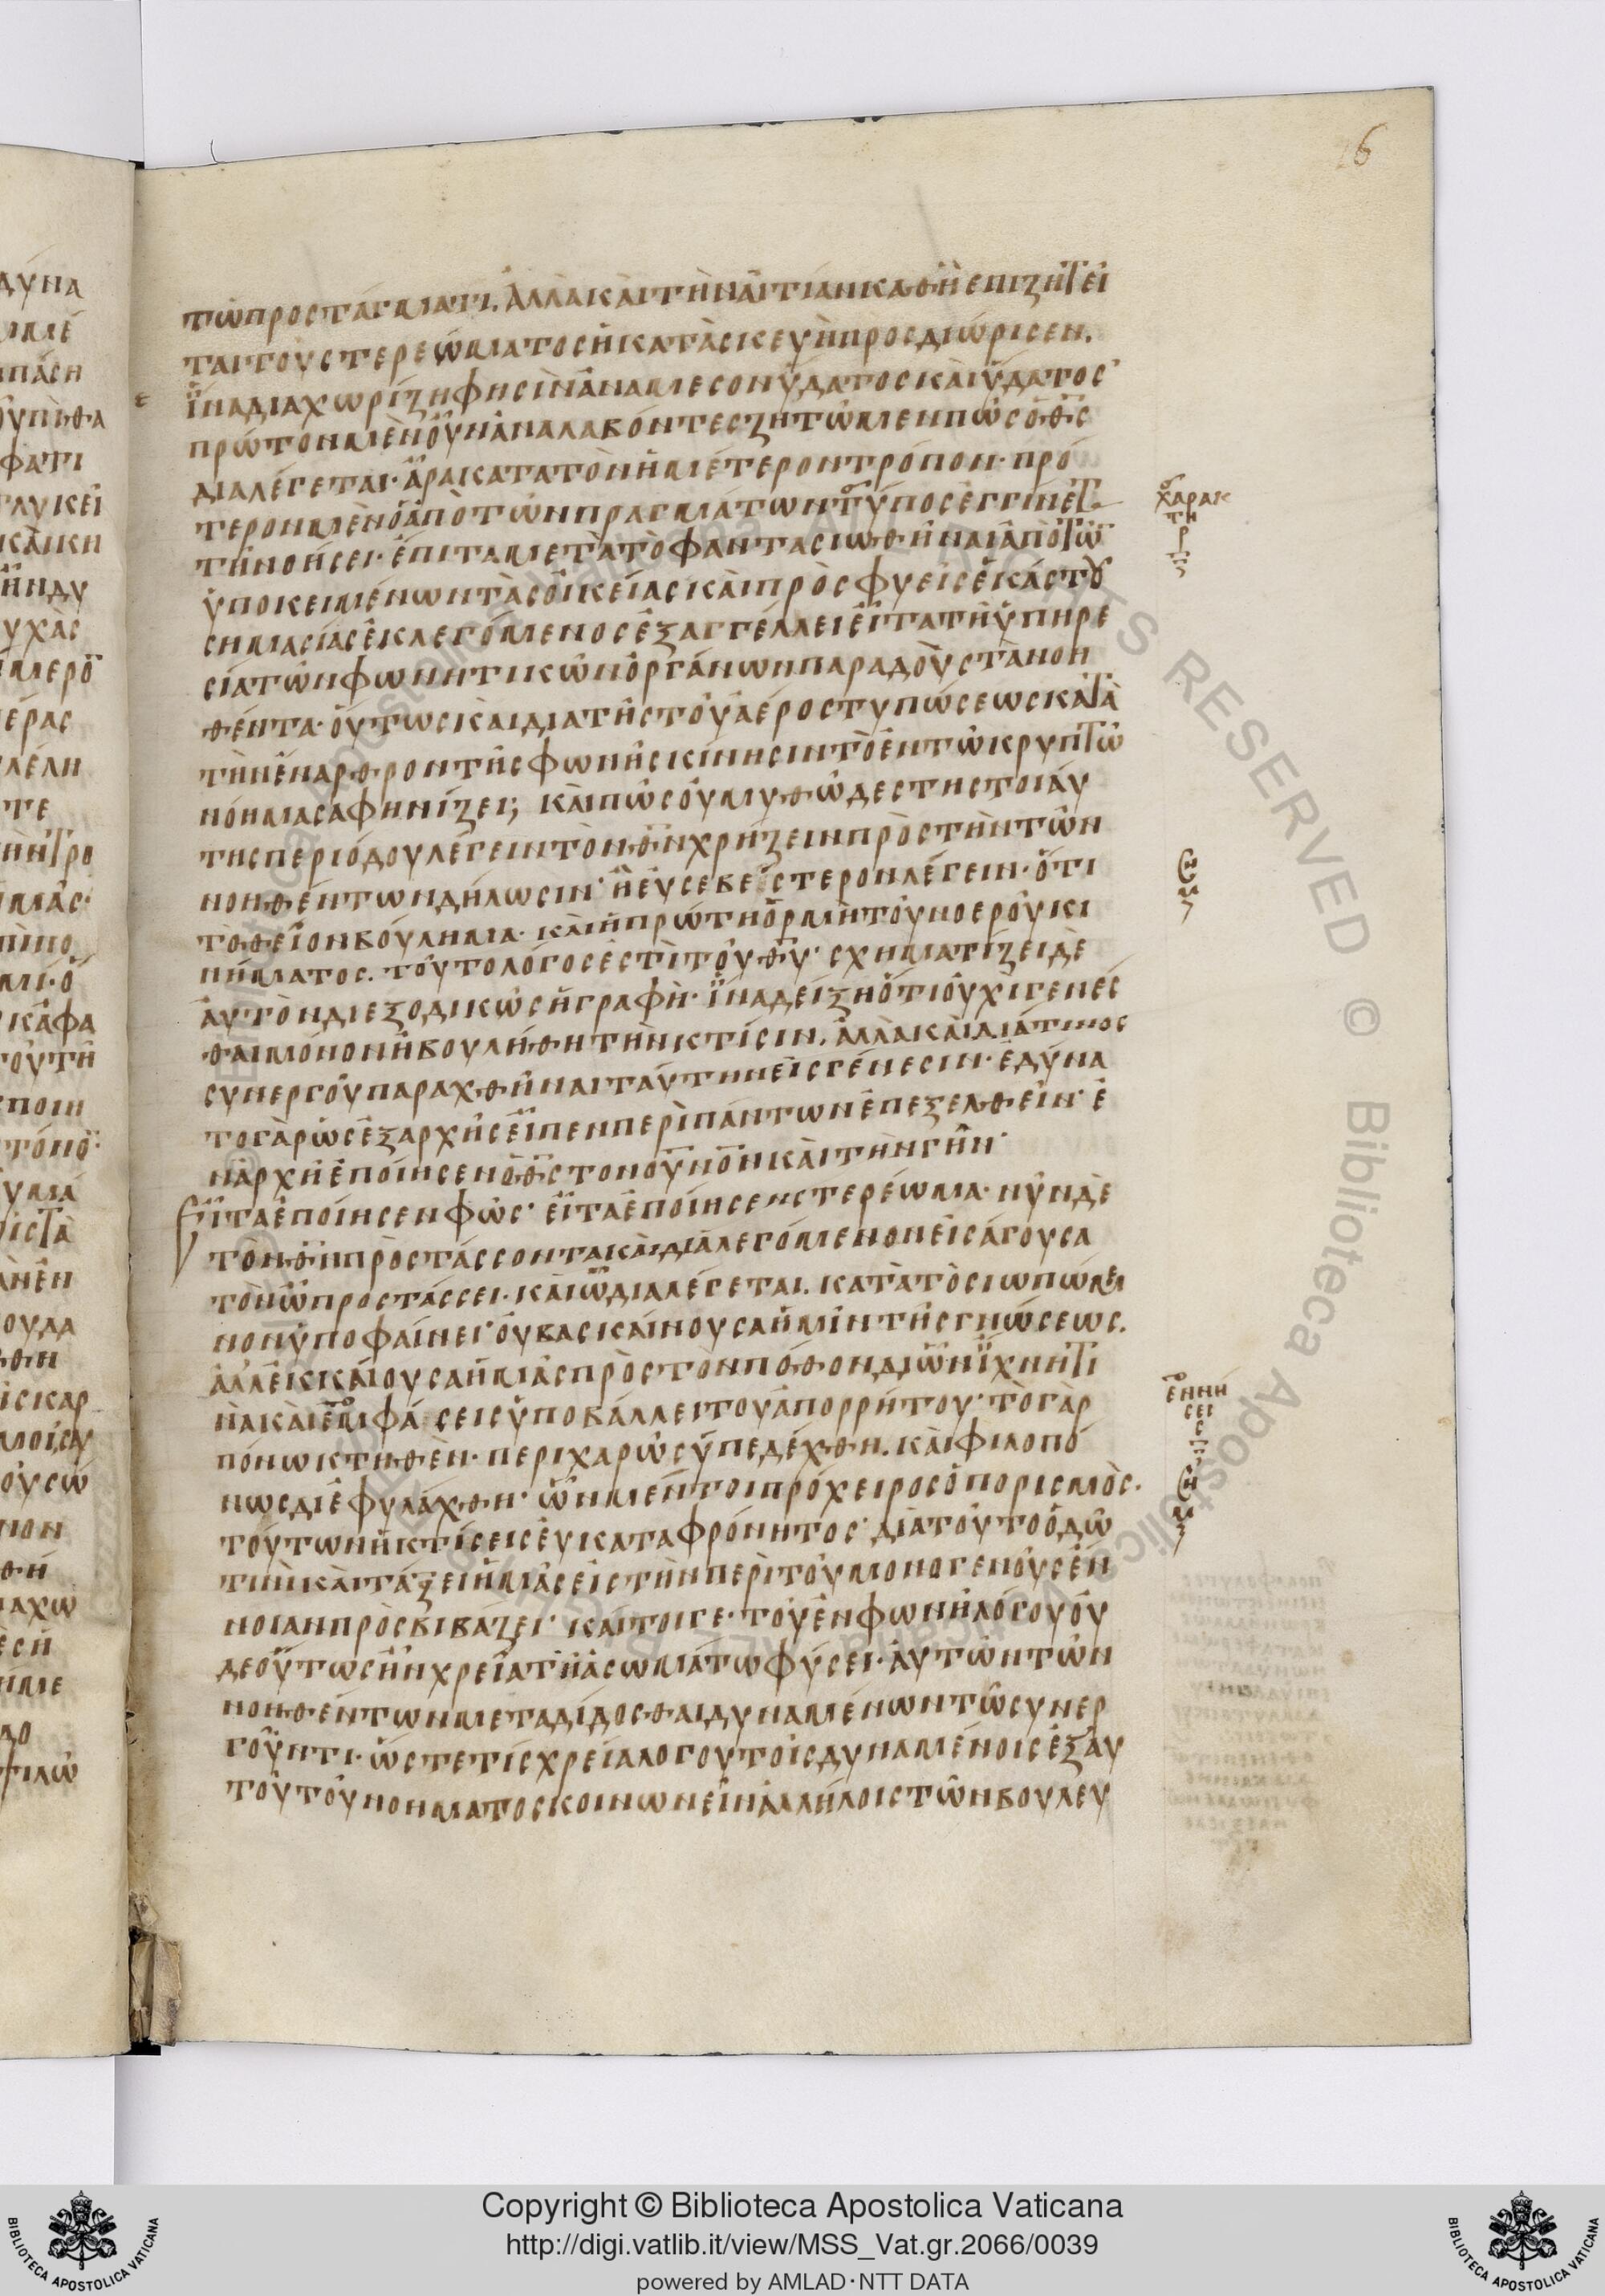 6
τωπροστάγματι. ἀλλὰκαὶτὴναἰτίανκαθ ἣνεπιζητεῖ
ταιτοῦστερεώματοςἡκατασκευὴπροσδιώρισεν.
ἵναδιαχωρίζηφησὶνἀναμεσονὕδατοςκαὶὕδατος
πρῶτονμὲνοὖνἀναλαβόντεςζητῶμενπῶςὁθς
διαλέγεται· ἆρακατατὸνἡμέτεροντρόπον· πρό
τερονμὲνὁἀπὸτῶνπραγμάτωντύποςἐγγίνετ
τῆνοήσει· ἔπιταμετὰτὸφαντασιωθῆναιἀπὸτῶ
ὑποκειμένωντὰςοἰκείαςκαὶπρὸςφυεῖςἑκάστου
σημασίαςἐκλεγόμενοςἐξαγγέλλειεἶτατῆὑπηρε
σίατῶνφωνητικῶνὀργάνωνπαραδοὺςτὰνοη
θέντα· οὕτωςκαὶδιατῆςτοῦἀέροςτυπώσεωςκατὰ
τὴνἔναρθροντῆςφωνῆςκίνησιντὸἐντῶκρυπτῶ
νόημασαφηνίζει; καὶπῶςοὐμυθῶδεςτηςτοιαύ
τηςπεριόδουλέγειντὸνθνχρήζεινπρὸςτὴντῶν
νοηθέντωνδήλωσιν· ἢεὐσεβέστερονλέγειν· ὅτι
τὸθεῖονβούλημα· καὶἡπρώτηὁρμὴτοῦνοεροῦκι
νήματος. τοῦτολόγοςἐστὶτοῦθυ· σχηματίζειδὲ
αὐτὸνδιεξοδικῶςἡγραφὴ· ἵναδείξηὅτιοὐχὶγενέσ
θαιμόνονἠβουλήθητὴνκτίσιν. ἀλλὰκαὶδιάτινος
συνεργοῦπαραχθῆναιταύτηνεἰςγένεσιν· ἐδύνα
τογὰρὡςἐξαρχῆςεἶπενπερὶπάντωνἐπεξελθεῖν· ἐ
νἀρχῆἐποίησενὁθςτονουνονκαὶτὴνγῆν·
Εἶταἐποίησενφῶς· εἶταἐποίησενστερέωμα· νῦνδὲ
τὸνθνπροστάσσοντακαὶδιαλεγόμενονεἰσάγουσα
τὸνὧπροστάσσει· καὶὧδιαλέγεται. κατὰτὸσιωπώμε
νονὑποφαίνει· οὐβασκαίνουσαἡμῖντῆςγνώσεως.
ἀλλἐκκαίουσαἡμᾶςπρὸςτὸνπόθονδιῶνἴχνητι
νὰκαὶἐμφάσειςὑποβάλλειτοῦἀπορρήτου· τὸγὰρ
πόνωκτηθὲν· περιχαρῶςὑπεδέχθη. καὶφιλοπό
νωςδιεφυλάχθη· ὧνμέντοιπρόχειροςὁπορισμὸς·
τούτωνἡκτίσειςεὐκαταφρόνητος· διατοῦτοὁδῶ
τινὶκαὶτάξειἡμᾶςεἰςτὴνπερὶτοῦμονογενοῦςἔν
νοιανπροσβιβάζει· καίτοιγε· τοῦἐνφωνῆλόγουοὐ
δεοὕτωςἦνχρεῖατῆἀσωμάτωφύσει· αὐτῶντῶν
νοηθέντωνμεταδίδοσθαιδυναμένωντῶσυνερ
γοῦντι· ὥστετίςχρείαλογουτοῖςδυναμένοιςἐξαυ
τοῦτοῦνοηματοςκοινωνεῖνἀλλήλοιςτῶνβουλευ
χαρακ
τη
ρ
ση
μ
ἐννή
σει
ς
ση
μ
Copyright © Biblioteca Apostolica Vaticana
http://digi.vatlib.it/view/MSS_Vat.gr.2066/0039
powered by AMLAD·NTT DATA
BIBLIOTECA APOSTOLICA VATICANA
BIBLIOTECA APOSTOLICA VATICANA